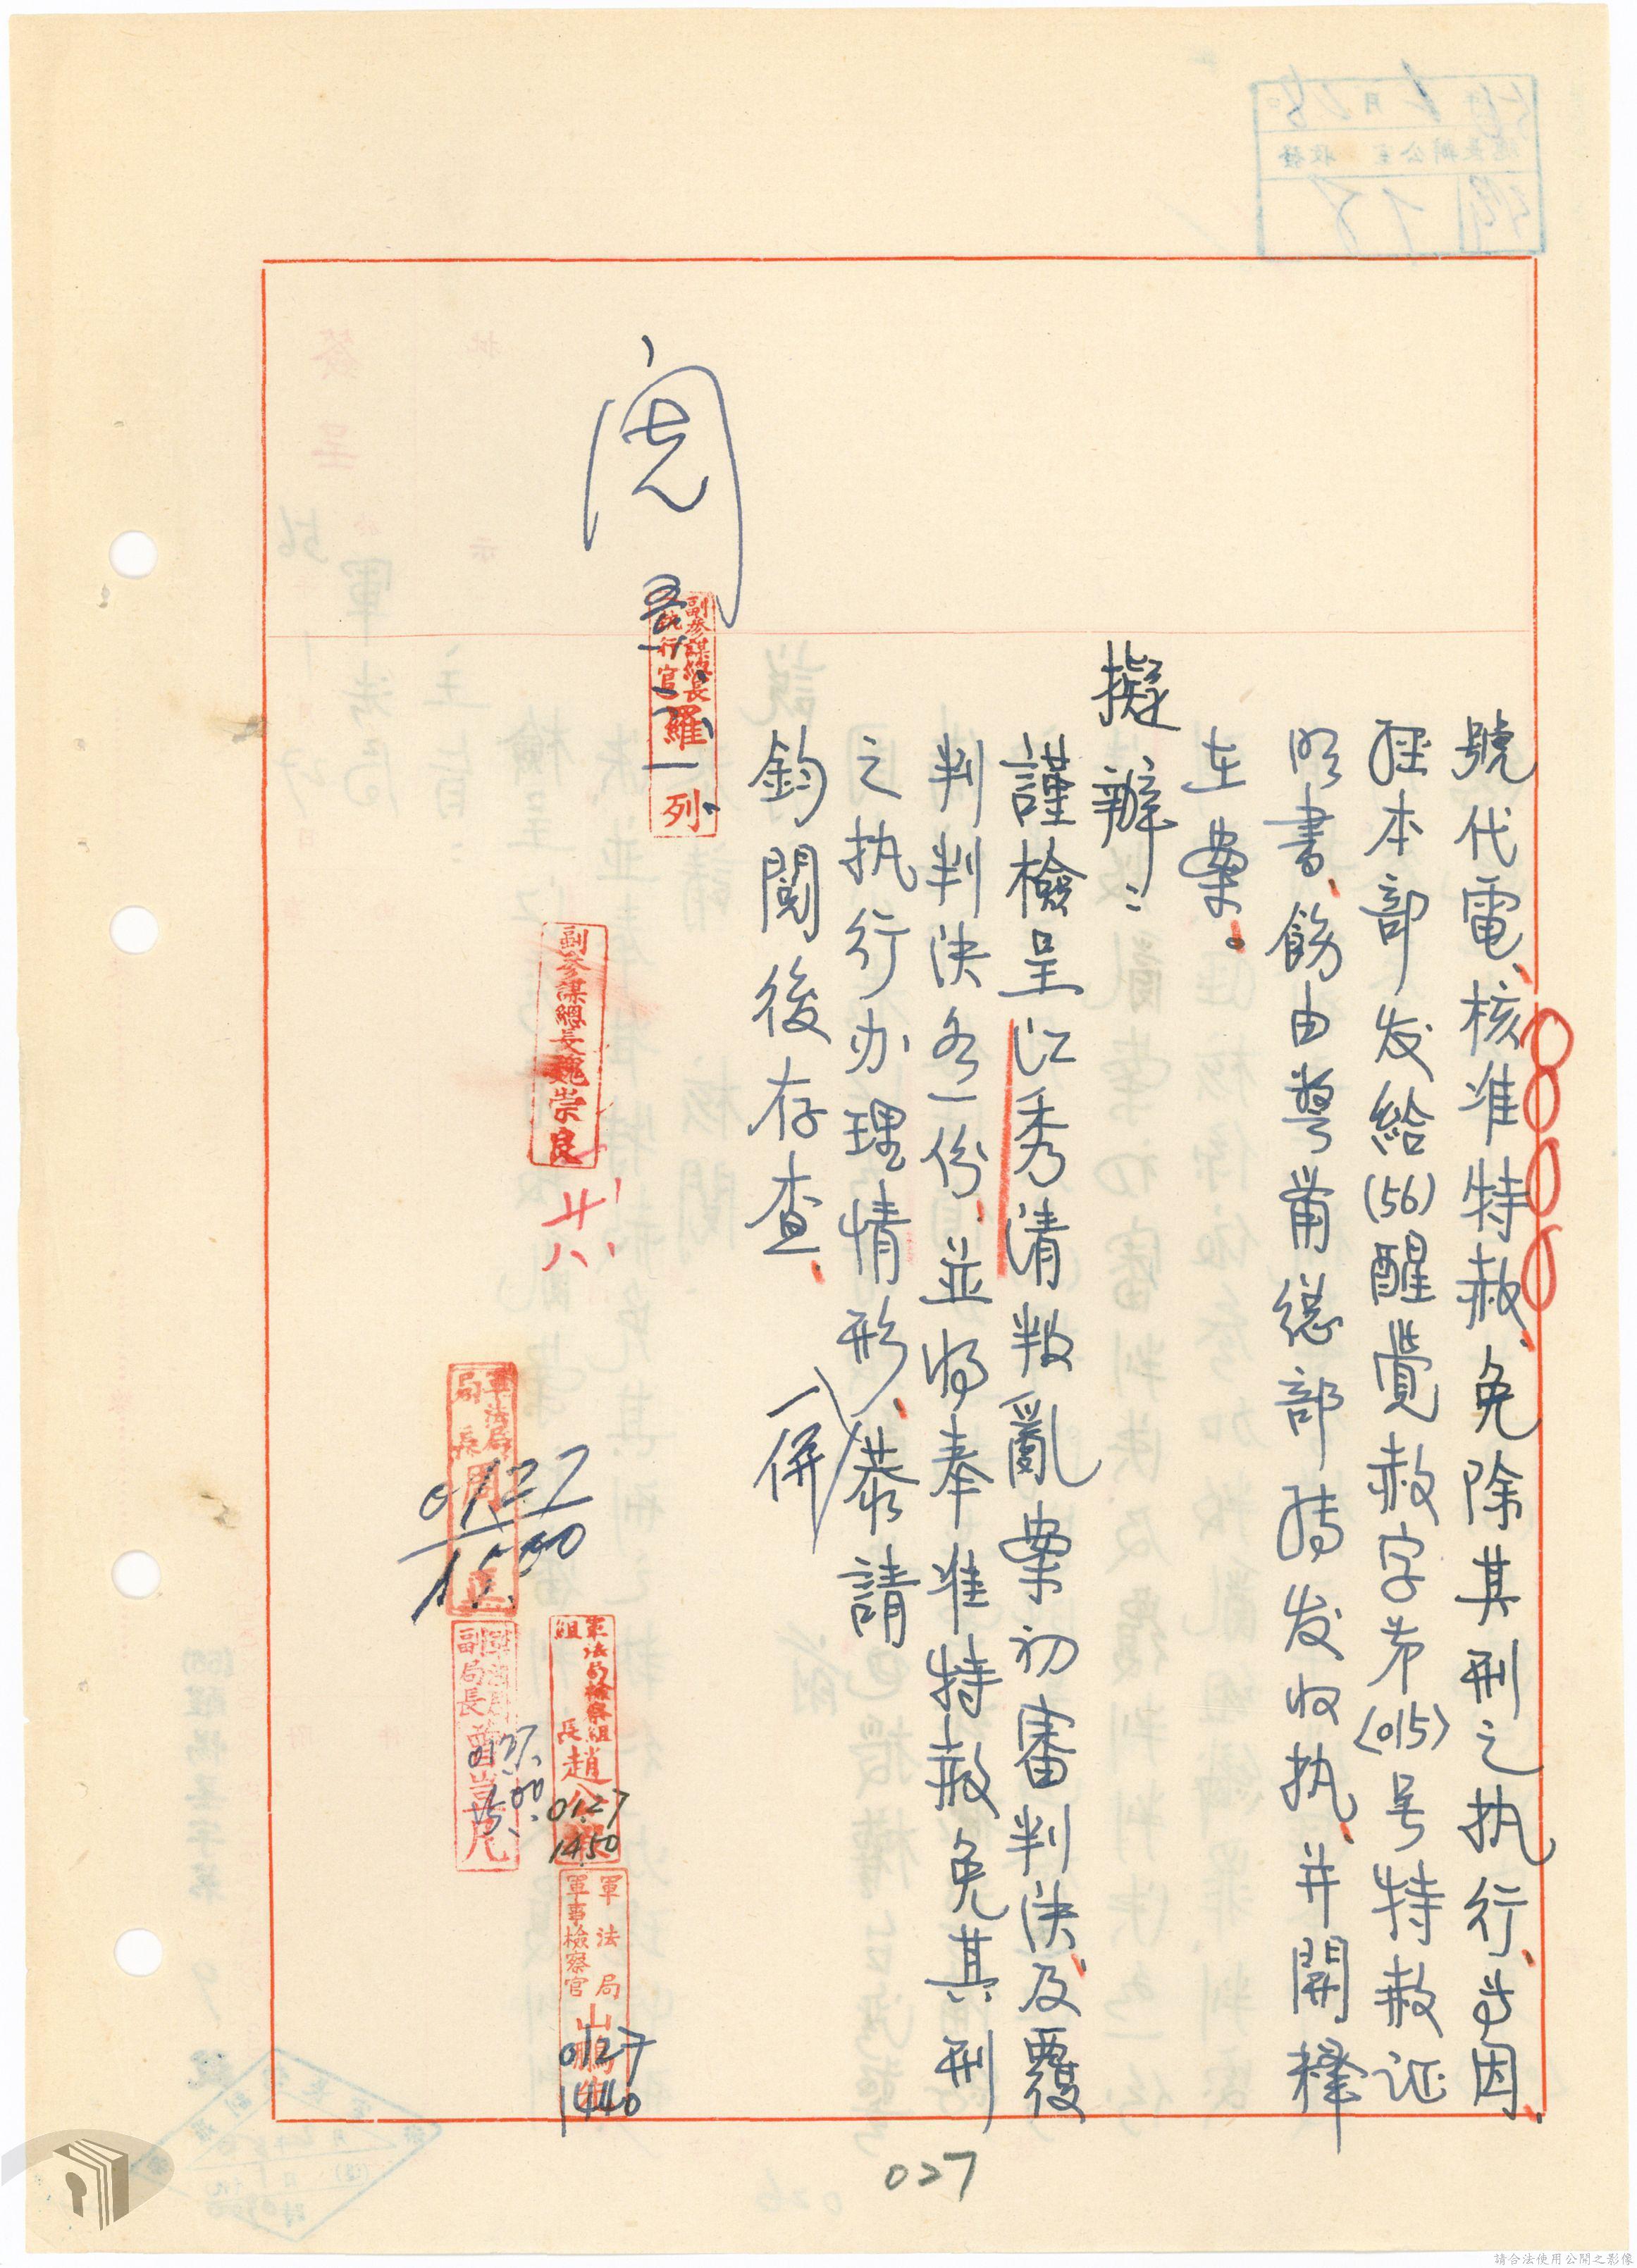 號代電、核准特赦、免除其刑之执行、
經本部发給(56)醒覺赦字第(015)号特赦证
明書、飭由警備總部轉发收执、并開釋
在案。
擬辦：
謹檢呈江秀清叛亂案初審判決及覆
判判決各一份、並將奉准特赦免其刑
之执行办理情形、恭請
鈞閱後存查、
一併
閱
副參謀總長
執行官 羅一列
副參謀總長魏崇良
廿八
軍法局
局長 周正
0127
1500
軍法局
副局長
0127
1500
軍法局檢察組
組長 趙公
0127
1450
軍法局
軍事檢察官
0127
1440
027
請合法使用公開之影像